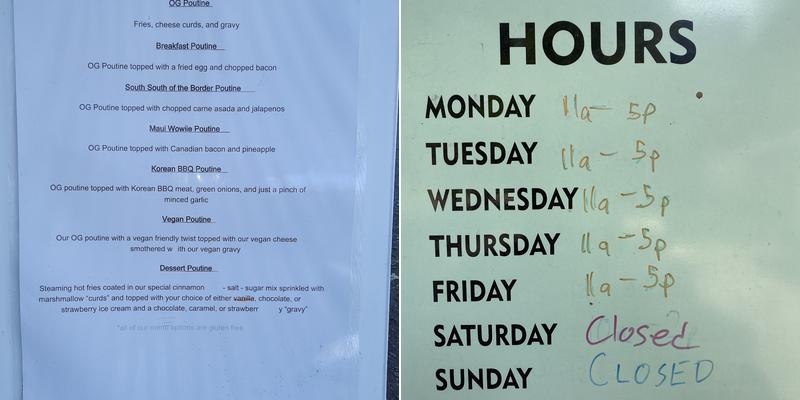 OG Poutine
Fries, cheese curds, and gravy
Breakfast Poutine
OG Poutine topped with a fried egg and chopped bacon
South South of the Border Poutine
OG Poutine topped with chopped carne asada and jalapenos
Maui Wowiie Poutine
OG Poutine topped with Canadian bacon and pineapple
Korean BBQ Poutine
OG poutine topped with Korean BBQ meat, green onions, and just a pinch of
minced garlic
Vegan Poutine
Our OG poutine with a vegan friendly twist topped with our vegan cheese
smothered w ith our vegan gravy
Dessert Poutine
Steaming hot fries coated in our special cinnamon - salt - sugar mix sprinkled with
marshmallow "curds" and topped with your choice of either vanille, chocolate, or
strawberry ice cream and a chocolate, caramel, or strawberr y "gravy"
*all of our menu options are gluten free
HOURS
MONDAY 11a - 5p
TUESDAY 11a - 5p
WEDNESDAY 11a - 5p
THURSDAY 11a - 5p
FRIDAY 11a - 5p
SATURDAY Closed
SUNDAY CLOSED